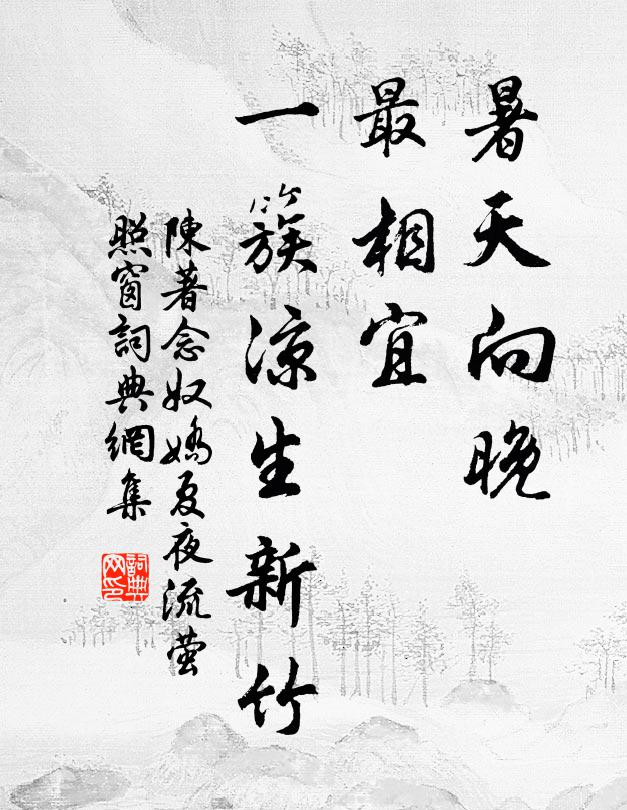 暑天向晚
最相宜
一簇涼生新竹
陳著念奴嬌夏夜流萤
照窗詞典網集
詞典
网印